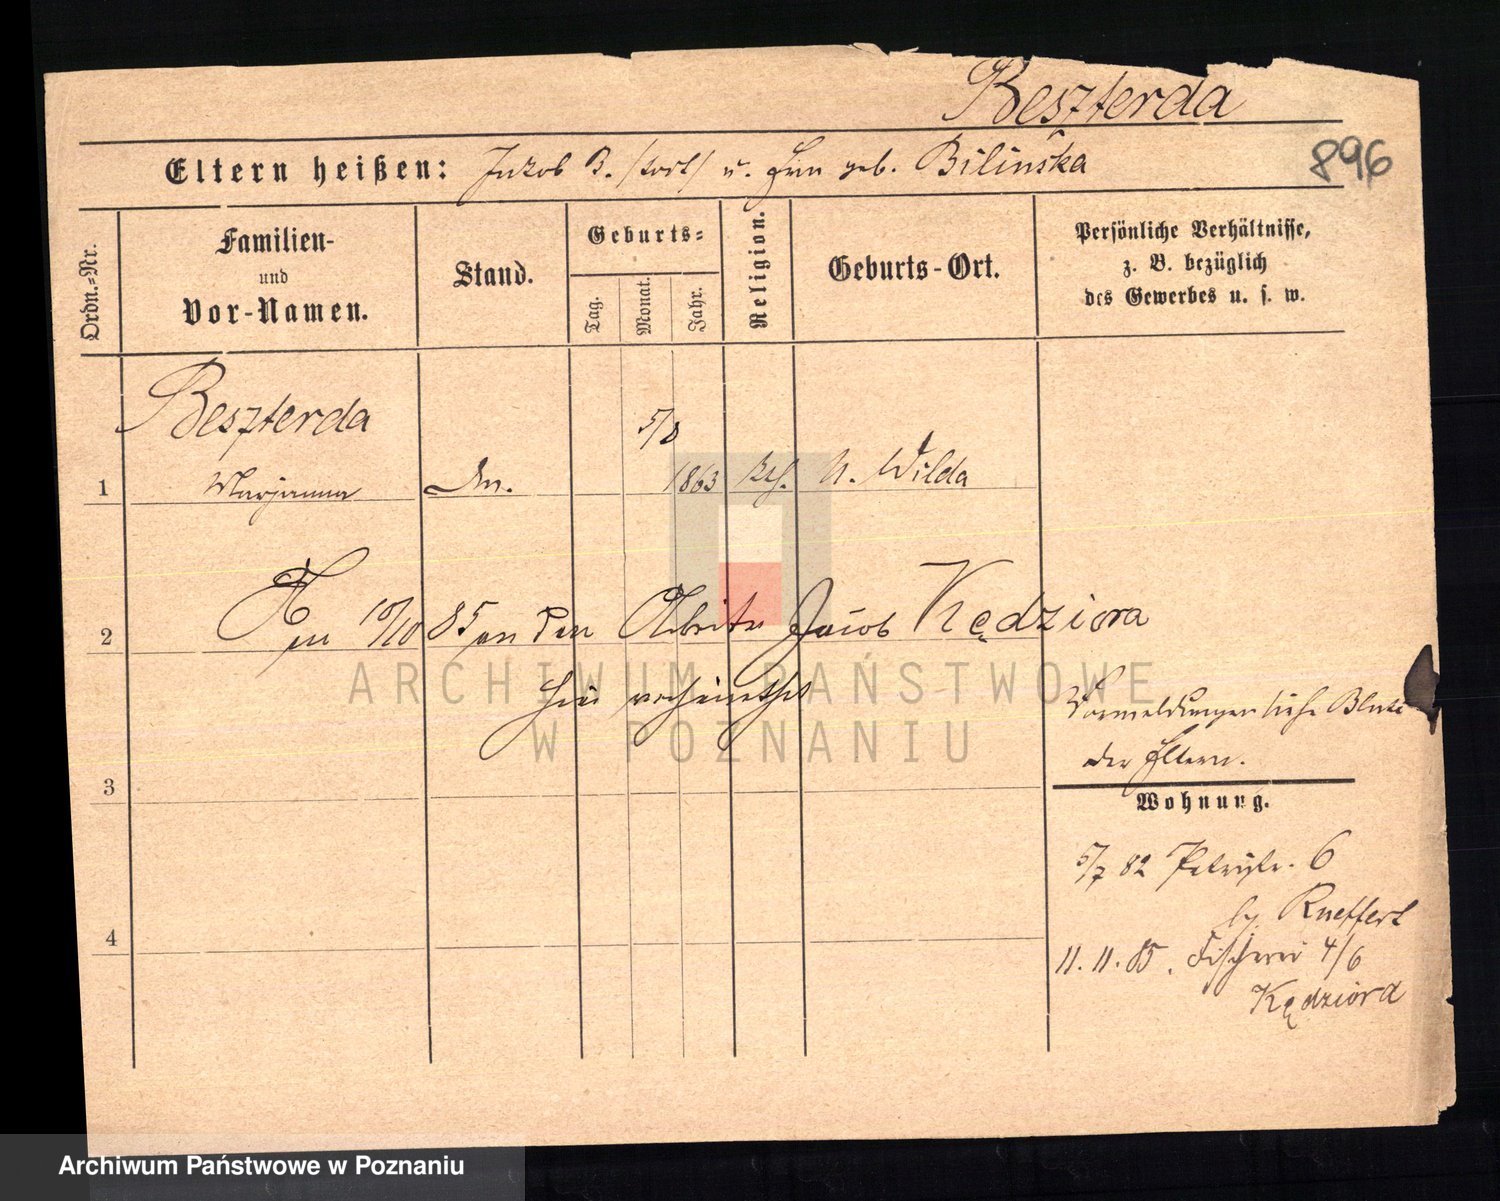 Beszterda
896
Eltern heißen: Jakob B. (todt) u. Eva geb. Bilińska
Ordn.-Nr.
Familien-
und
Vor-Namen.
Stand.
Geburts-
Tag.
Monat.
Jahr.
Religion.
Geburts-Ort.
Persönliche Verhältnisse,
z. B. bezüglich
des Gewerbes u. s. w.
Beszterda
5/8
1 Marjanna 1863 kth. U. Wilda
2 10/10 85 an den Arbeiter Jacob Kędziora
hier verheirathet
Vormeldungen siehe Blatt
der Eltern.
3
Wohnung.
5/7 82 Petristr. 6
by Rueffert
4
11.11.85. Fischerei 4/6
Kędziora
ARCHIWUM PAŃSTWOWE
W POZNANIU
Archiwum Państwowe w Poznaniu